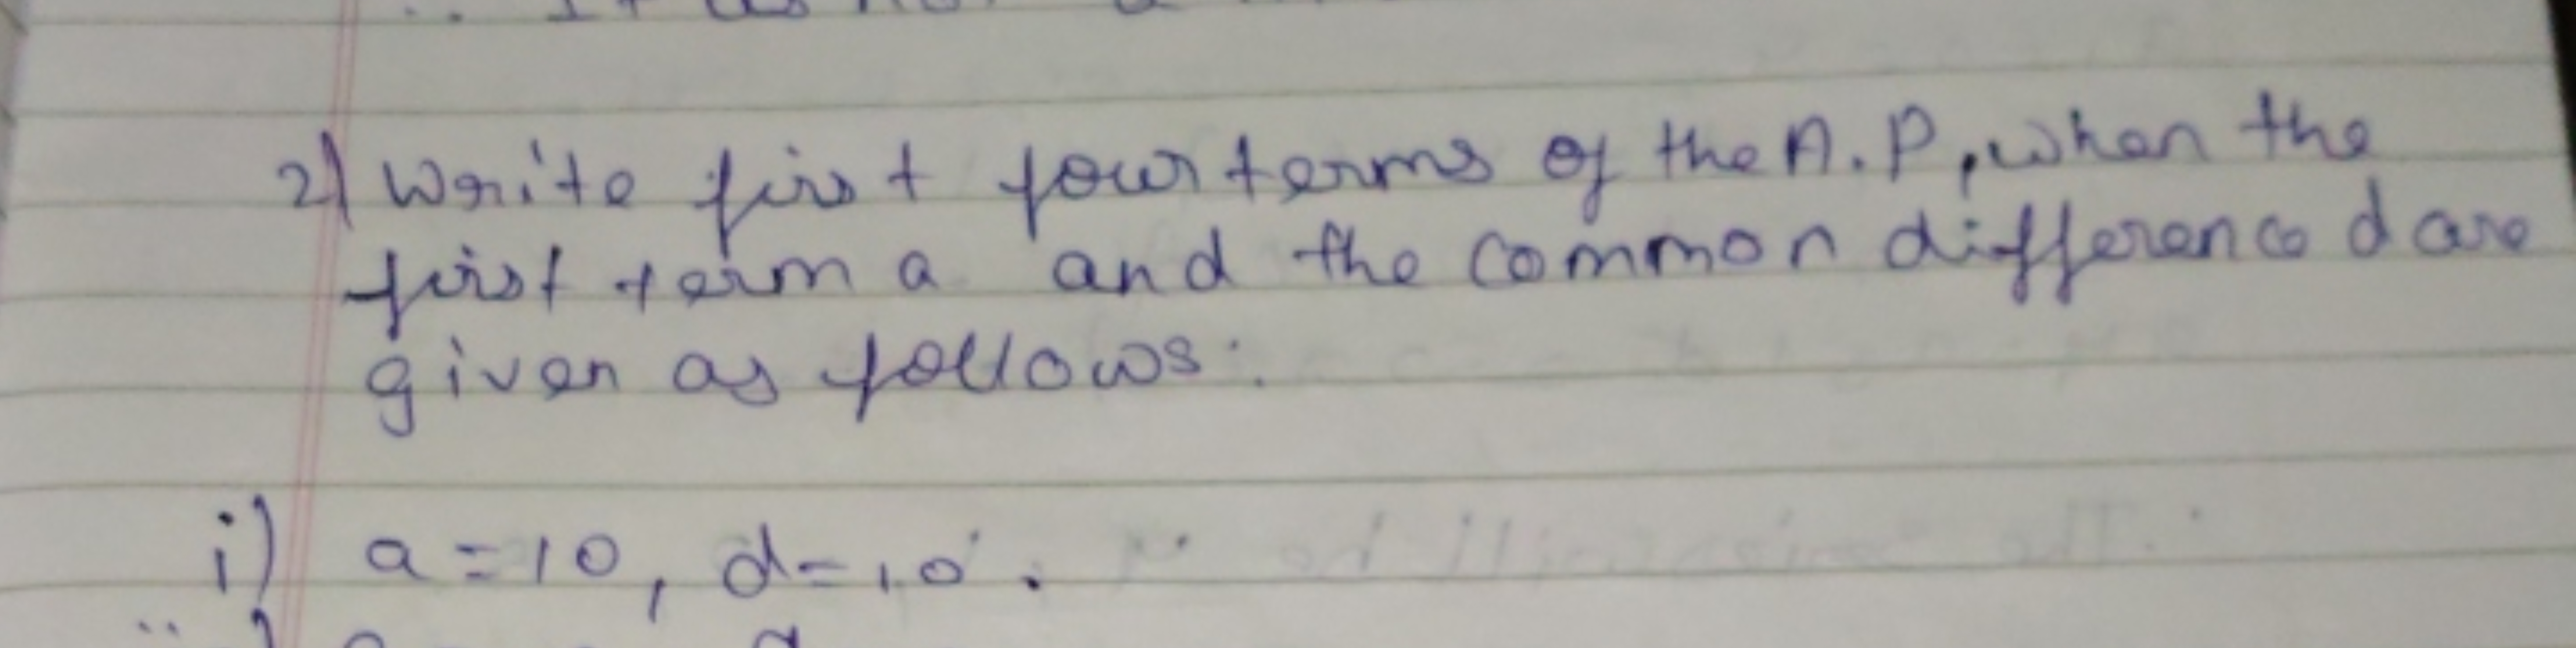 2) Write first four terms of the A.P, when the
first term a and the common difference d are
given as follows:
i) a = 10, d = 10.